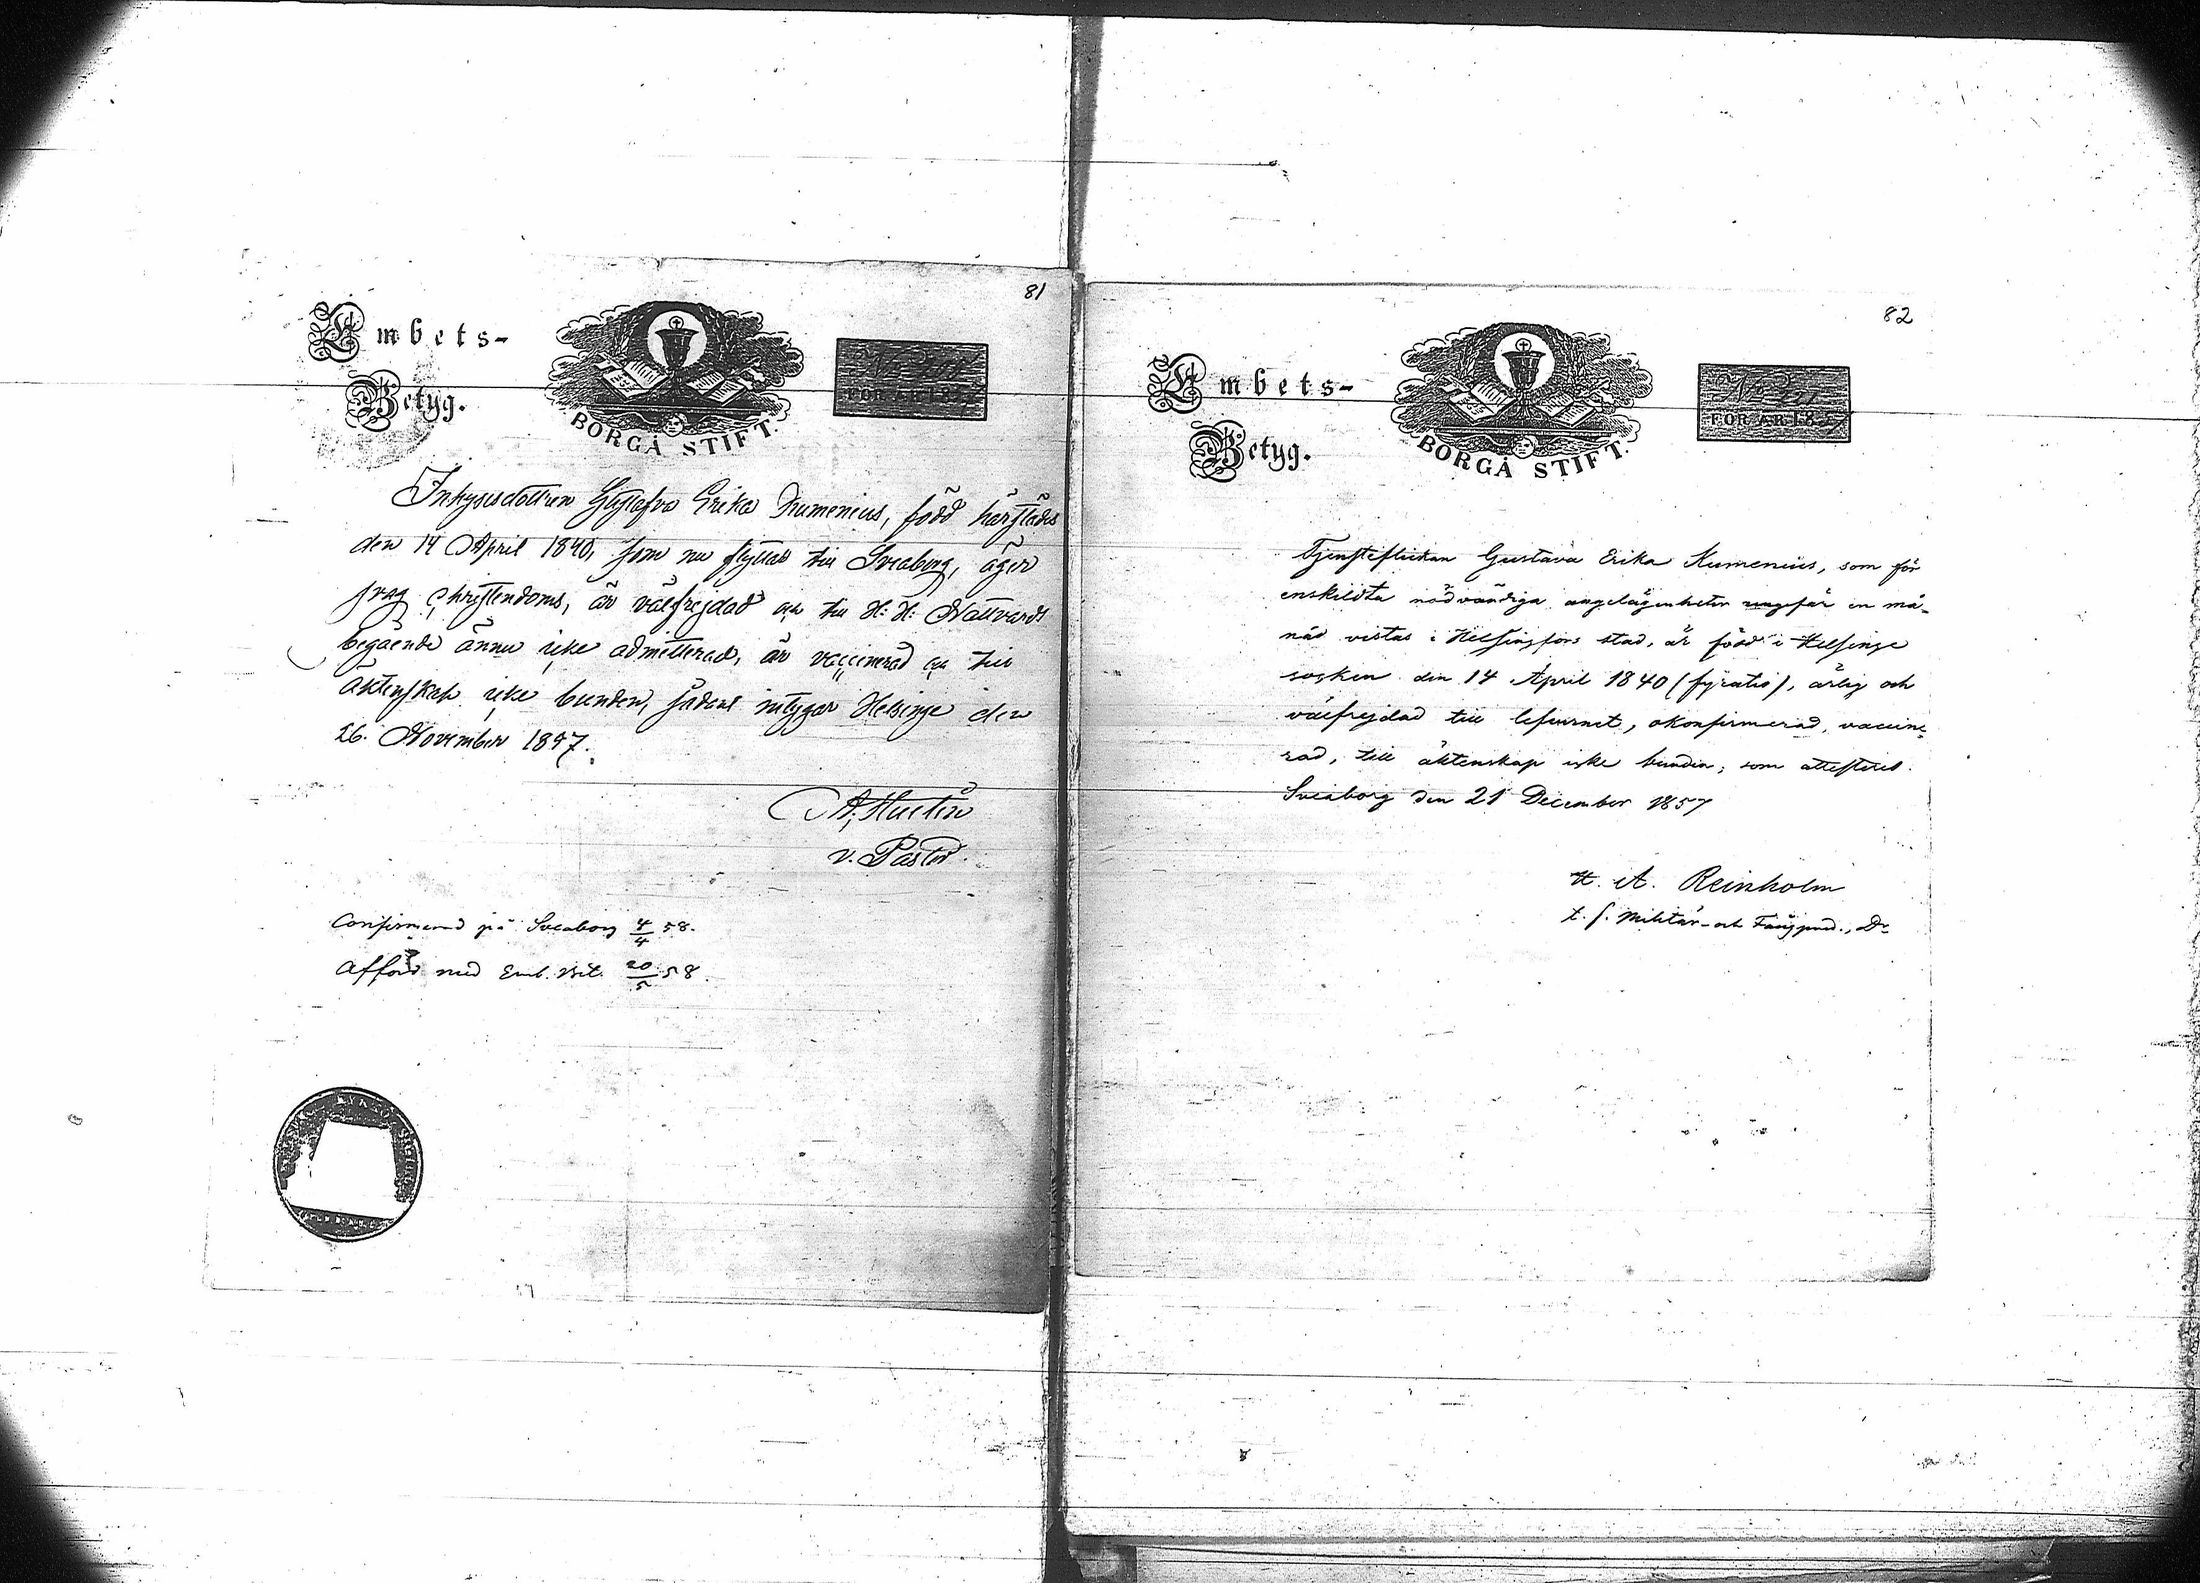 81
Embets-
Betyg.
BORGÅ STIFT.
FÖR ÅR 185
Inhysesdottren Gustafva Erika Kumenius, född härstädes
den 14 April 1840, som nu flyttar till Sveaborg, äger
svag Christendoms, är välfrejdad och till H: H: Nattvards
begående ännu icke admitterad, är vaccinerad och till
äktenskap icke bunden, sådant intygar Helsinge den
26. November 1857.
v. Pastor.
Confirmerad på Sveaborg 4/4 58.
Afförd med Emb. Bet. 20/5 58.
82
Embets-
Betyg.
BORGÅ STIFT.
FÖR ÅR 1857
Tjensteflickan Gustava Erika Kumenius, som för
enskildta nödvändiga angelägenheter ungefär en må-
nad vistas i Helsingfors stad, är född i Helsinge
socken den 14 April 1840 (fyratio), ärlig och
välfrejdad till lefvernet, okonfirmerad, vaccine-
rad, till äktenskap icke bunden; som attesteras.
Sveaborg den 21 December 1857
H. A. Reinholm
t. f. Militär- och Fångpred., Dr